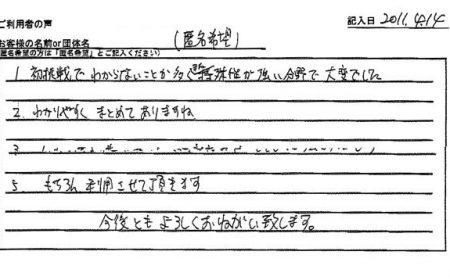 ご利用者の声
記入日 2011.4.14
お客様の名前or団体名 (匿名希望)
(匿名希望の方は「匿名希望」とご記入ください)
1 初挑戦でわからないことが多く特殊性が強い分野で大変でした
2 わかりやすくまとめてありますね
3
5 もちろん利用させて頂きます
今後ともよろしくおねがい致します。